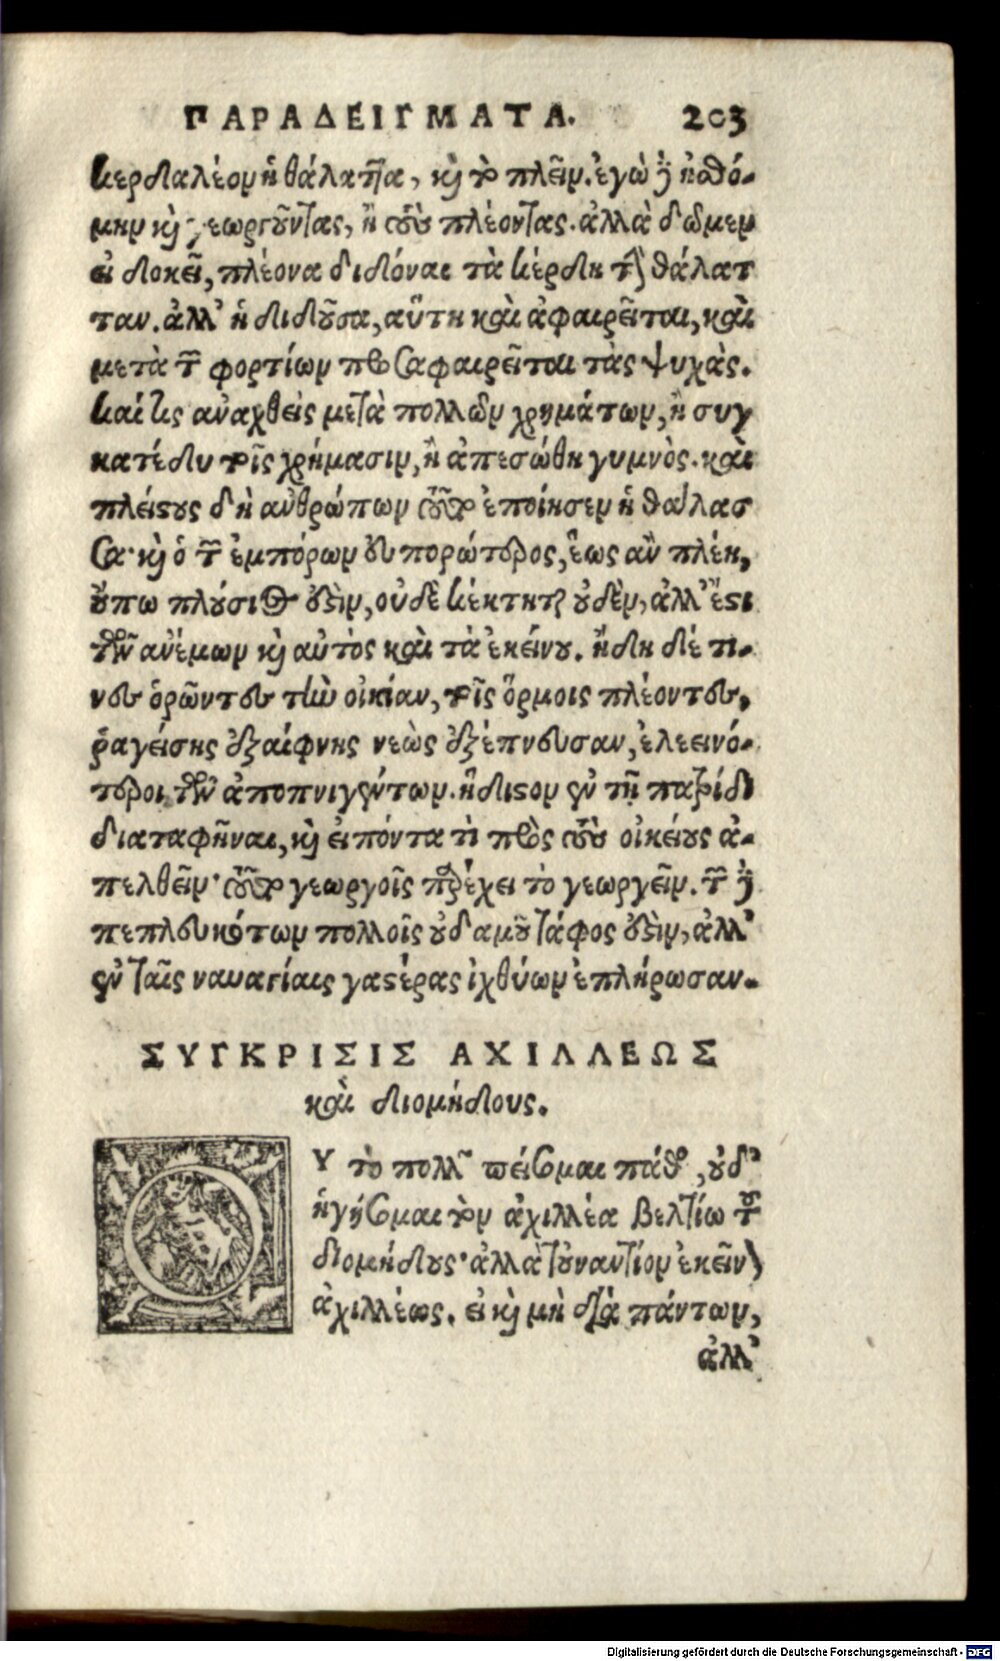 ΠΑΡΑΔΕΙΓΜΑΤΑ. 203
κερδαλέον ἡ θάλαττα, καὶ τὸ πλεῖν. ἐγὼ δὲ ᾐσθό-
μην καὶ γεωργοῦντας, ἢ τοὺς πλέοντας. ἀλλὰ δῶμεν
εἰ δοκεῖ, πλέονα διδόναι τὰ κέρδη τὴν θάλατ
ταν. ἀλλ' ἡ διδοῦσα, αὕτη καὶ ἀφαιρεῖται, καὶ
μετὰ τῶν φορτίων προσαφαιρεῖται τὰς ψυχὰς.
καί τις ἀναχθεὶς μετὰ πολλῶν χρημάτων, ἢ συγ
κατέδυ τοῖς χρήμασιν, ἢ ἀπεσώθη γυμνὸς. καὶ
πλείστους δὴ ἀνθρώπων τοῦτο ἐποίησεν ἡ θάλασ
σα· καὶ ὁ τῶν ἐμπόρων εὐπορώτερος, ἕως ἂν πλέη,
οὔπω πλούσιος ἐστὶν, οὐδὲ κέκτηται οὐδὲν, ἀλλ' ἔστι
τῶν ἀνέμων καὶ αὐτὸς καὶ τὰ ἐκείνου. ἤδη δέ τι-
νες ὁρῶντες τὴν οἰκίαν, τοῖς ὅρμοις πλέοντες,
ῥαγείσης ἐξαίφνης νεὼς ἐξέπνευσαν, ἐλεεινό-
τεροι τῶν ἀποπνιγέντων. ἥδιστον ἐν τῇ πατρίδι
διαταφῆναι, καὶ εἰπόντα τὶ πρὸς τοὺς οἰκείους ἀ-
πελθεῖν· τοῦτο γεωργοῖς παρέχει τὸ γεωργεῖν. τῶν δὲ
πεπλευκότων πολλοῖς οὐδαμοῦ τάφος ἐστὶν, ἀλλ'
ἐν ταῖς ναυαγίαις γαστέρας ἰχθύων ἐπλήρωσαν.
ΣΥΓΚΡΙΣΙΣ ΑΧΙΛΛΕΩΣ
καὶ διομήδους.
ΟΥ τὸ πολλῶν πείσομαι πάθος, οὐδ'
ἡγήσομαι τὸν ἀχιλλέα βελτίω τοῦ
διομήδους· ἀλλὰ τοὐναντίον ἐκεῖνον
ἀχιλλέως. εἰ καὶ μὴ διὰ πάντων,
ἀλλ'
Digitalisierung gefördert durch die Deutsche Forschungsgemeinschaft - DFG